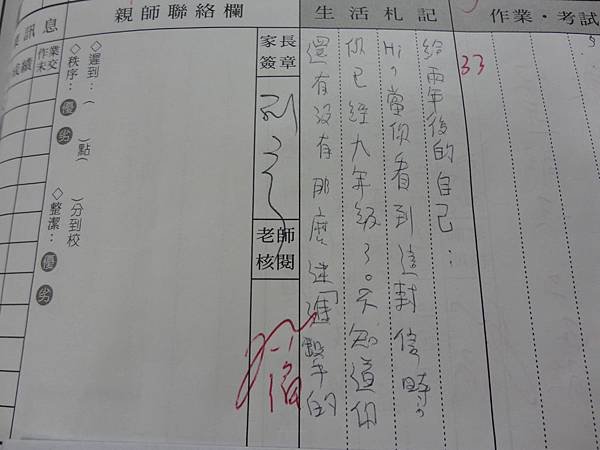 作業・考試
33
生活札記
給兩年後的自己：
Hi，當你看到這封信時，
你已經九年級了。不知道你
還有沒有那麼迷「進擊的
家長簽章
老師核閱
親師聯絡欄
◇遲到：（ ）點（ ）分到校
◇秩序：優 劣 ◇整潔：優 劣
訊息
作業未交
成績